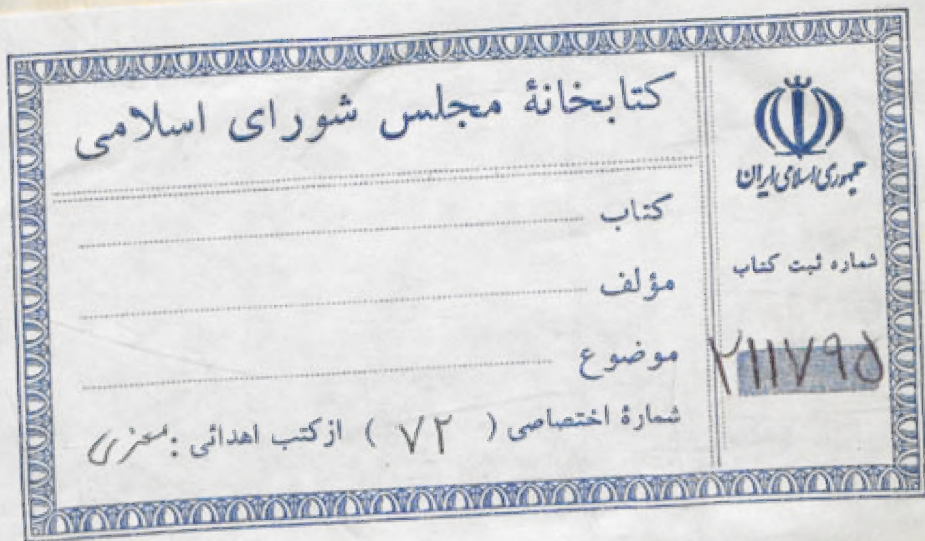 کتابخانهٔ مجلس شورای اسلامی
کتاب
مؤلف
موضوع
شمارهٔ اختصاصی ( ۷۲ ) از کتب اهدائی :
جمهوری اسلامی ایران
شماره ثبت کتاب
۲۱۱۷۹۵